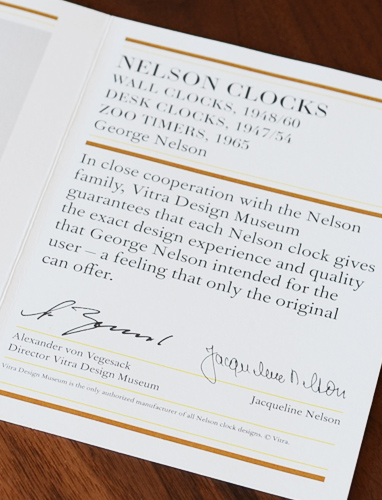 NELSON CLOCKS
WALL CLOCKS, 1948/60
DESK CLOCKS, 1947/54
ZOO TIMERS, 1965
George Nelson
In close cooperation with the Nelson
family, Vitra Design Museum
guarantees that each Nelson clock gives
the exact design experience and quality
that George Nelson intended for the
user – a feeling that only the original
can offer.
Jacqueline Nelson
Alexander von Vegesack
Director Vitra Design Museum
Jacqueline Nelson
Vitra Design Museum is the only authorized manufacturer of all Nelson clock designs. © Vitra.